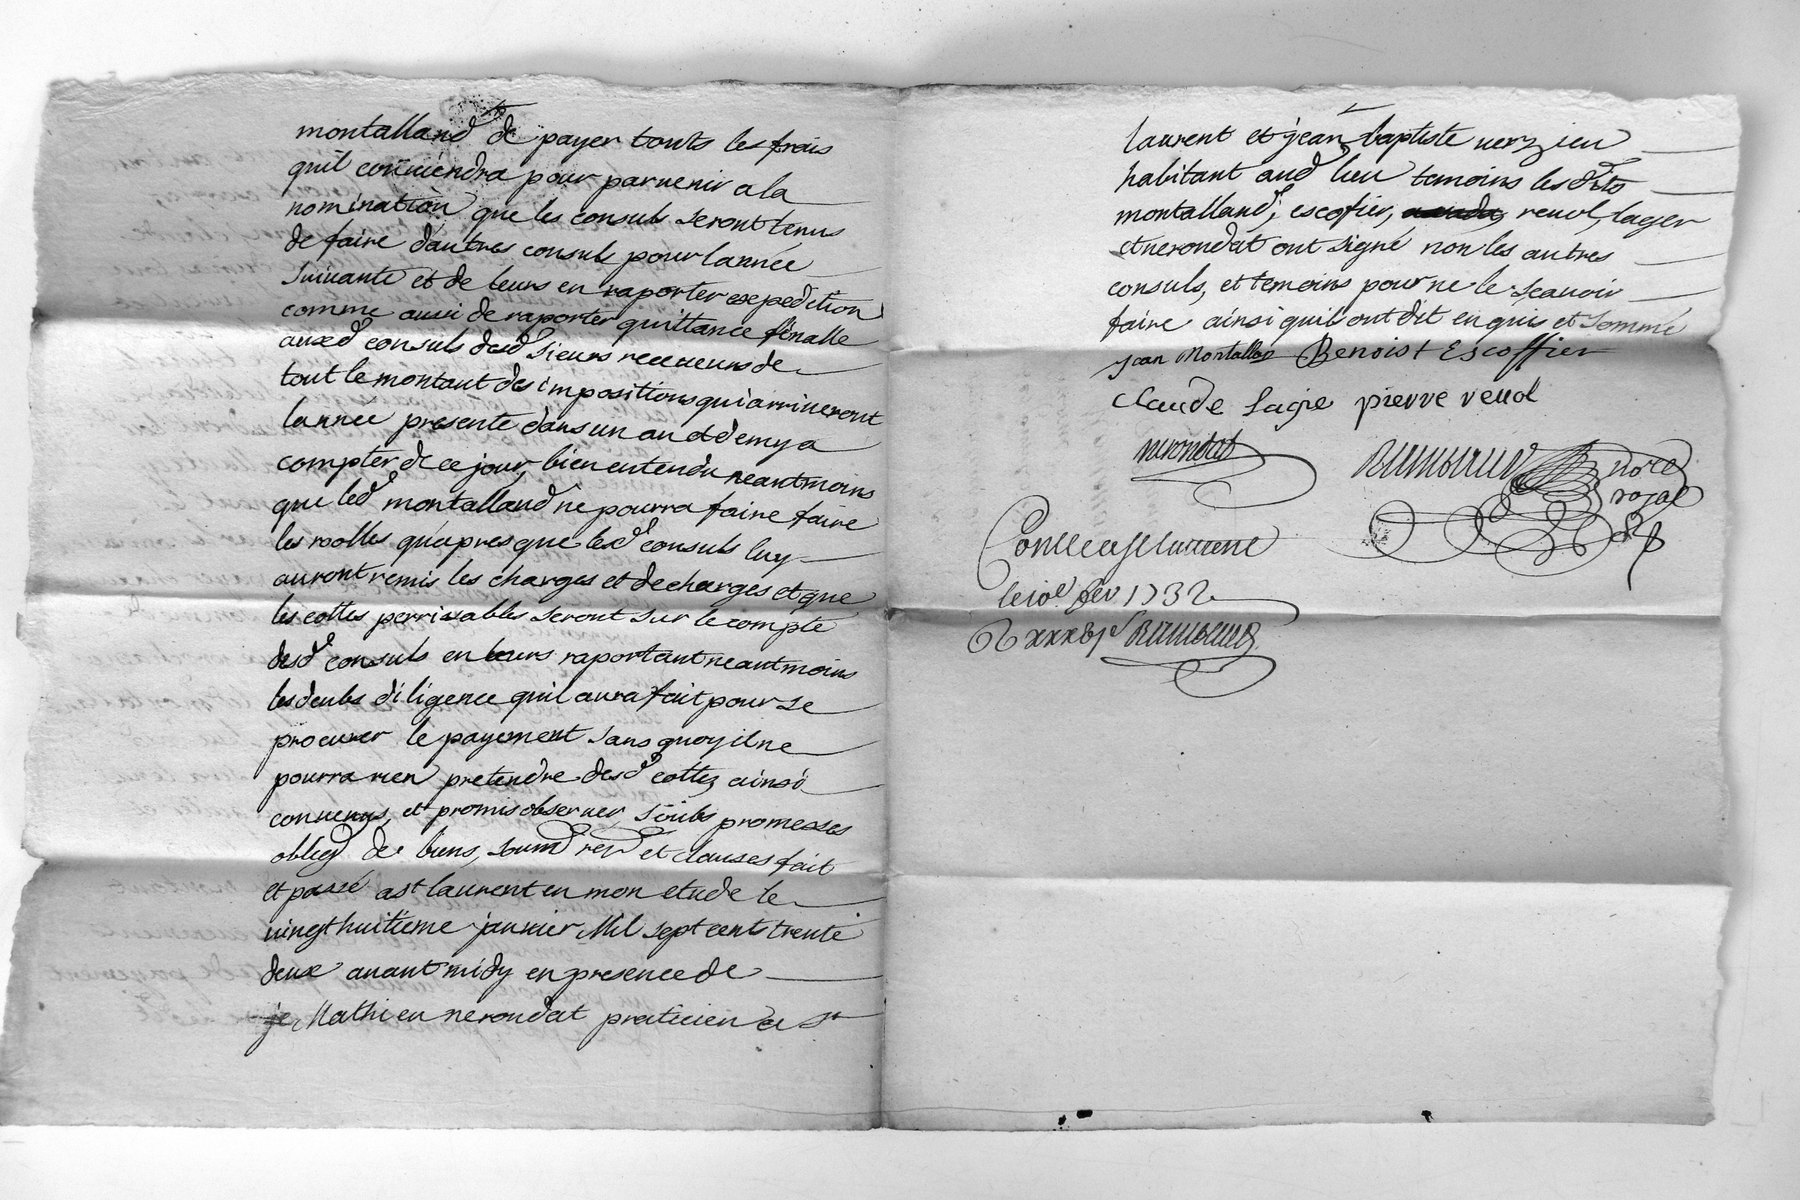 montalland de payer touts les frais
quil conviendra pour parvenir a la
nomination que les consuls seront tenus
de faire dautres consuls pour lannée
suivante et de leurs en raporter expedition
comme aussi de raporter quittance finalle
auxd consuls desd sieurs receveurs de
tout le montant des impositions qui arriveront
lannée presente dans un an et demy a
compter de ce jour, bien entendu neantmoins
que led montalland ne pourra faire faire
les rolles quapres que lesd consuls luy
auront remis les charges et decharges et que
les cottes perissables seront sur le compte
desd consuls en leurs raportant neantmoins
les deubes diligence quil aura fait pour se
procurer le payement sans quoy il ne
pourra rien pretendre desd cottes ainsi
convenus, et promis observer soubs promesses
oblig de biens, soum ren et clauses fait
et passé a st laurent en mon etude le
vingt huitieme janvier Mil sept cents trente
deux avant midy en presence de
Mathieu nerondat praticien a st
laurent et jean baptiste verzieu
habitant aud lieu temoins lesdits
montalland, escofier, revol, lager
et nerondat ont signé non les autres
consuls, et temoins pour ne le scavoir
faire ainsi quils ont dit enquis et sommé
jean Montallan Benoist Escoffier
Claude Lagie pierre revol
nerondat
nore
royal
Conlle a St laurent
le 10e fev 1732